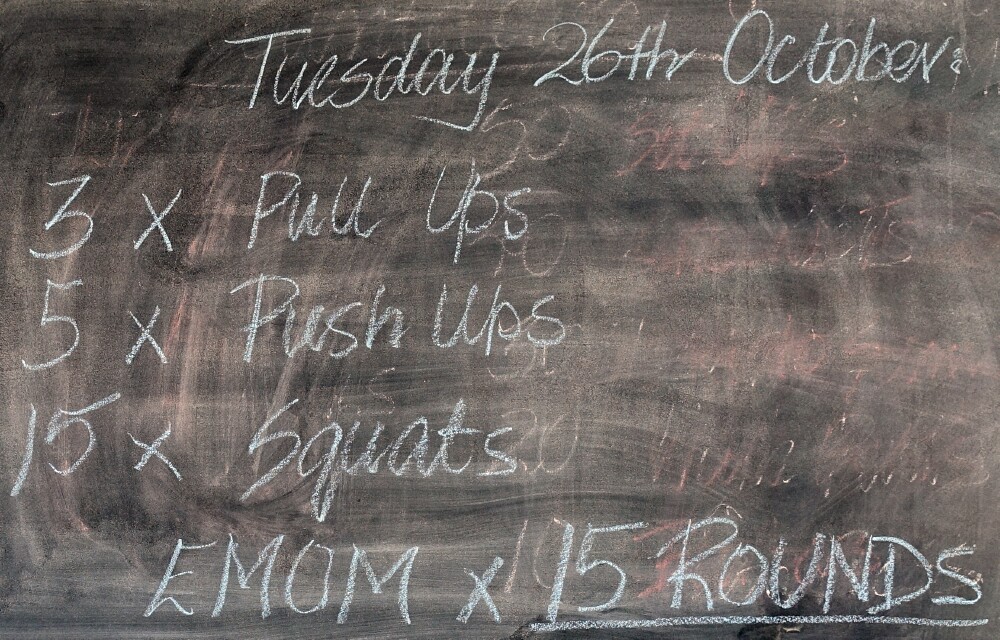 Tuesday 26th October:
3 x Pull Ups
5 x Push Ups
15 x Squats
EMOM x 15 ROUNDS